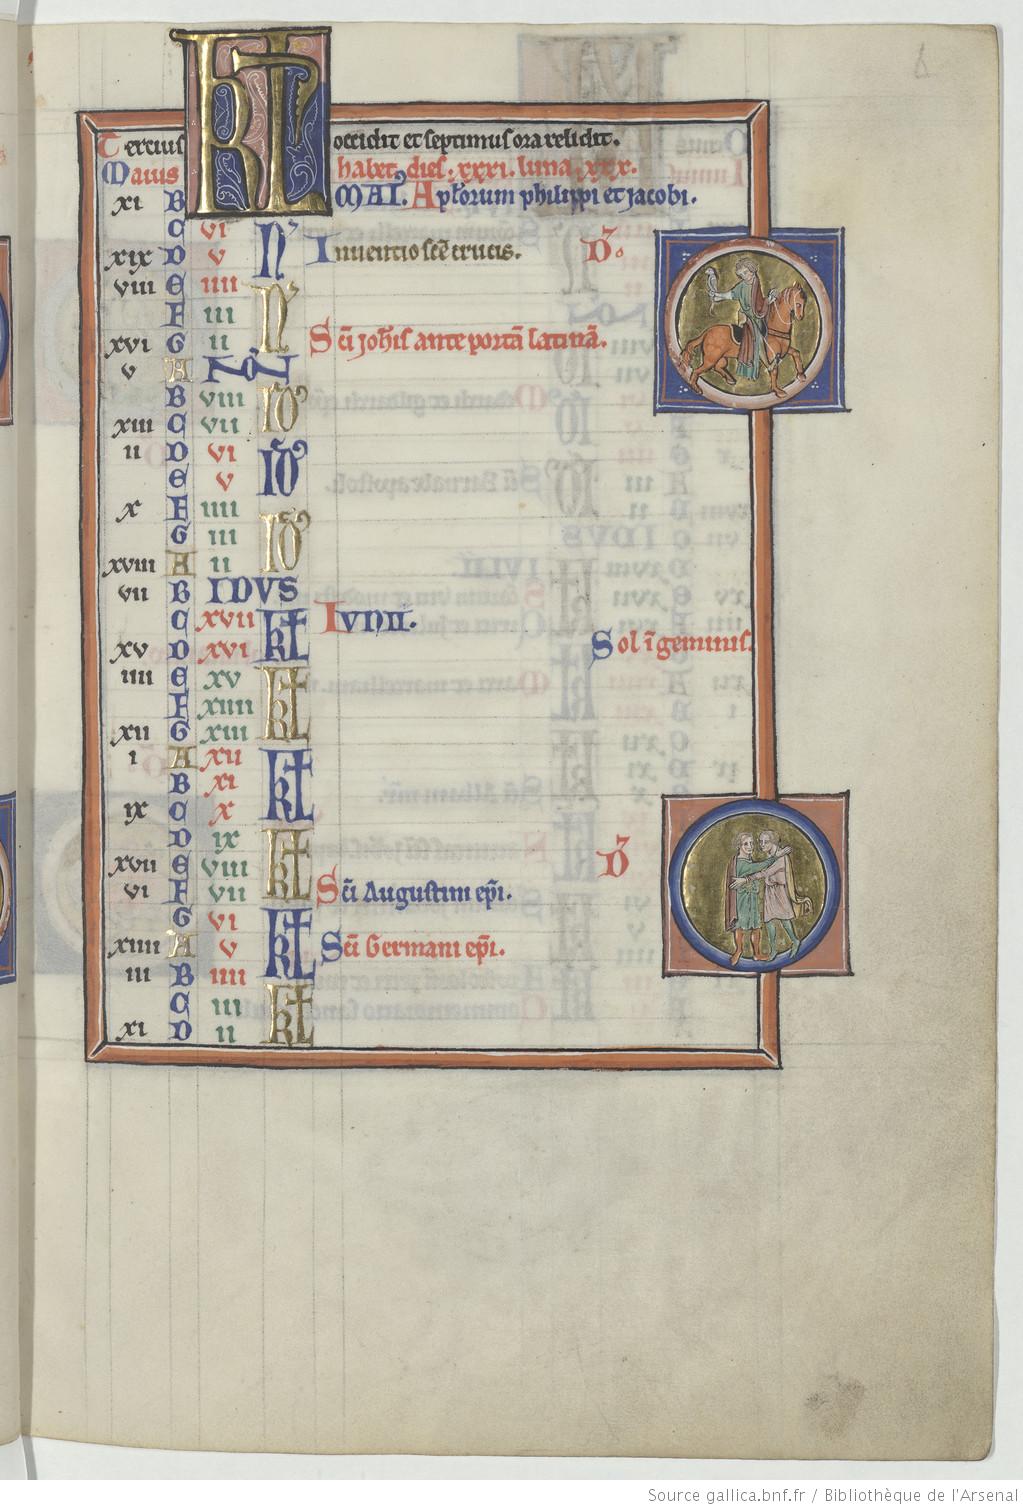 Tercius KL occidit et septimus ora relidit.
Maius habet dies .xxxi. luna .xxx.
xi B MAI. Apłorum philippi et jacobi.
C vi N̾
xix D v Inuentio sc̄e crucis. D̾
viii E iiii N̾
F iii
xvi G ii Sc̄i joh̄is ante portā latinā.
v A NON̾
B viii ID̾
xiii C vii
ii D vi ID̾
E v
x F iiii ID̾
G iii
xviii A ii
vii B IDVS
C xvii KL IVNII.
xv D xvi Sol ī geminis.
iiii E xv KL
F xiiii
xii G xiii
i A xii KL
B xi
ix C x
D ix KL D̾
xvii E viii
vi F vii Sc̄i Augustini ep̄i.
G vi KL
xiiii A v Sc̄i Germani ep̄i.
iii B iiii
C iii KL
xi D ii
Source gallica.bnf.fr / Bibliothèque de l'Arsenal